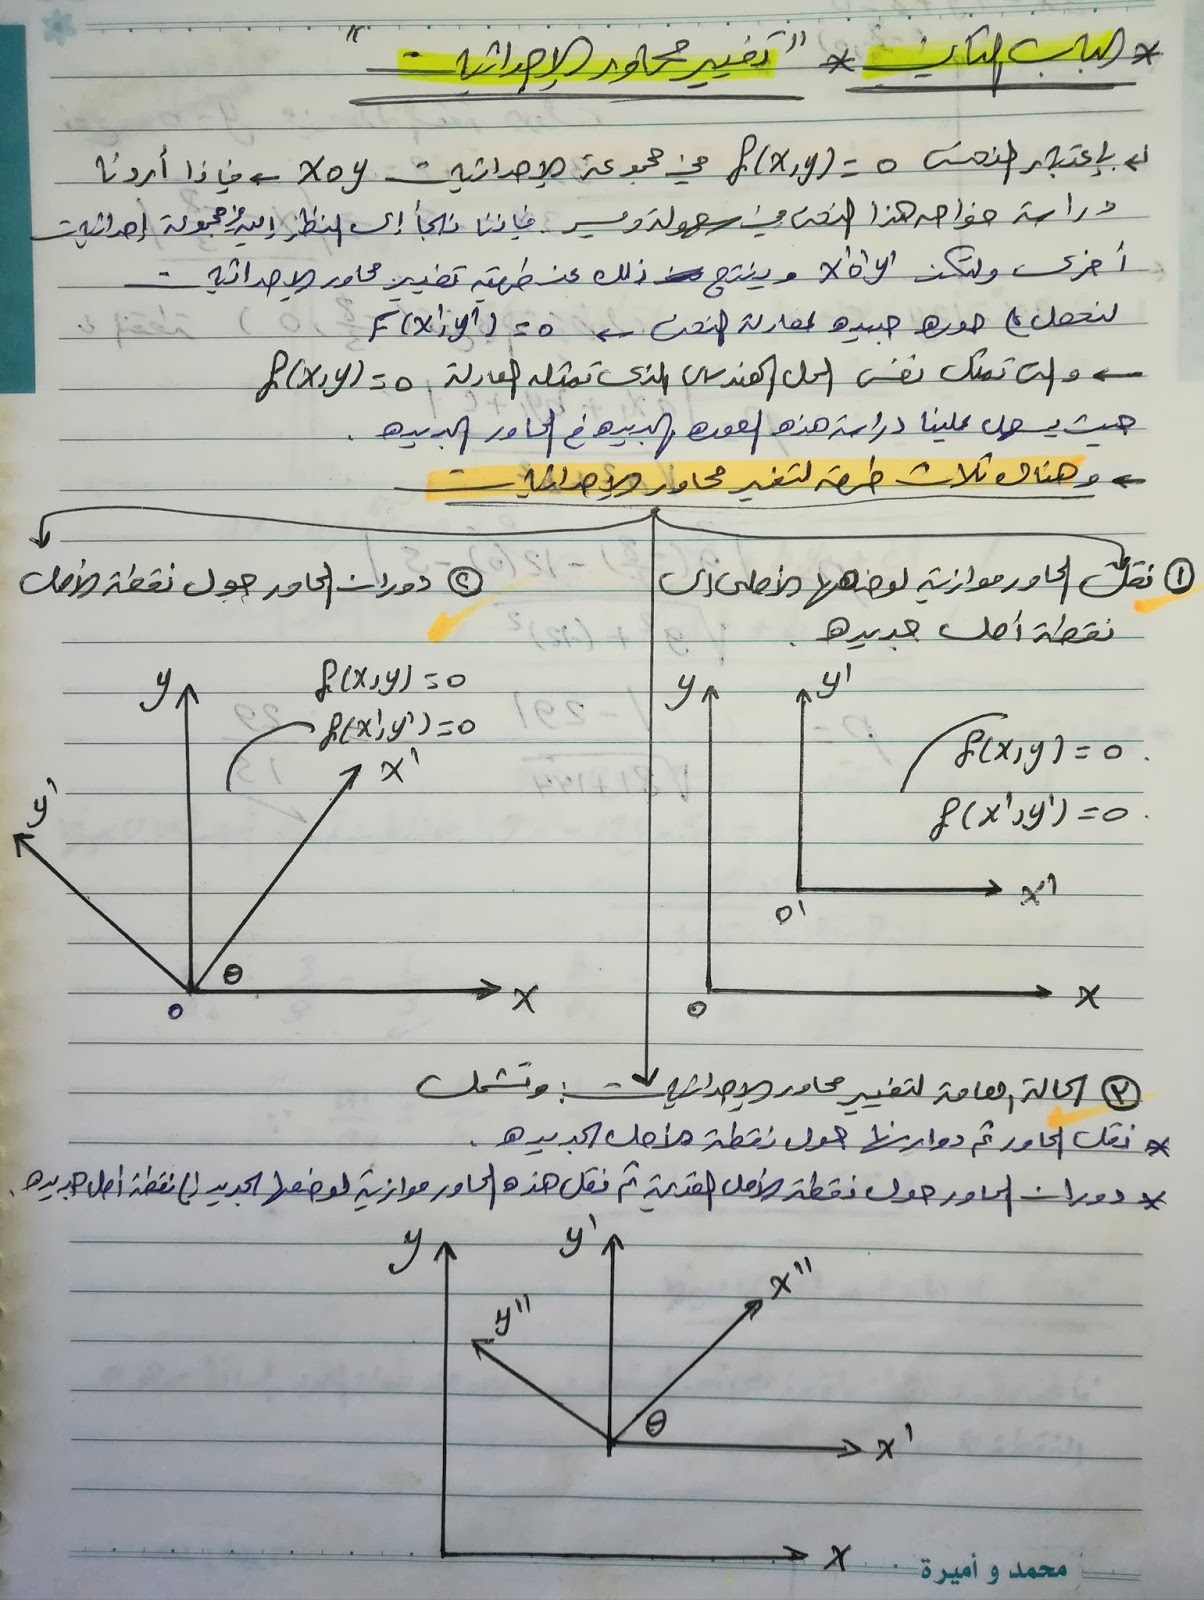 * الباب الثانى * "تغيير محاور الإحداثيات"
بإعتبار المنحنى f(x,y) = 0 فى مجموعة الإحداثيات xoy ← فإذا أردنا
دراسة خواص هذا المنحنى فى سهولة ويسر فإننا نلجأ إلى النظر إليه فى مجموعة إحداثيات
أخرى ولتكن x'o'y' وينتج ذلك عن طريق تغيير محاور الإحداثيات
لنحصل على صورة جديدة لمعادلة المنحنى ← F(x',y') = 0
← والتى تمثل نفس المحل الهندسى الذى تمثله المعادلة f(x,y) = 0
حيث يسهل علينا دراسة هذه الصورة الجديدة فى المحاور الجديدة .
← وهناك ثلاث طرق لتغير محاور الإحداثيات
① نقل المحاور موازية لوضعها الأصلى إلى
نقطة أصل جديدة .
y
y'
f(x,y) = 0
f(x',y') = 0
x'
o'
o
x
② دوران المحاور حول نقطة الأصل
y
f(x,y) = 0
f(x',y') = 0
x'
y'
θ
o
x
③ الحالة العامة لتغيير محاور الإحداثيات : وتشمل
* نقل المحاور ثم دورانها حول نقطة الأصل الجديدة .
* دوران المحاور حول نقطة الأصل القديمة ثم نقل هذه المحاور موازية لوضعها الجديد إلى نقطة أصل جديدة .
y
y'
x''
y''
θ
x'
x
محمد و أميرة